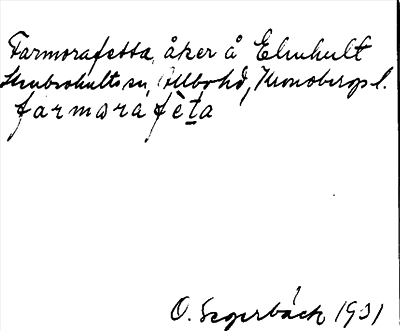 Farmorafetta, åker å Elmhult
Stenbrohults sn, Allbo hd, Kronobergs l.
farmorafèta
O. Segerbäck 1931